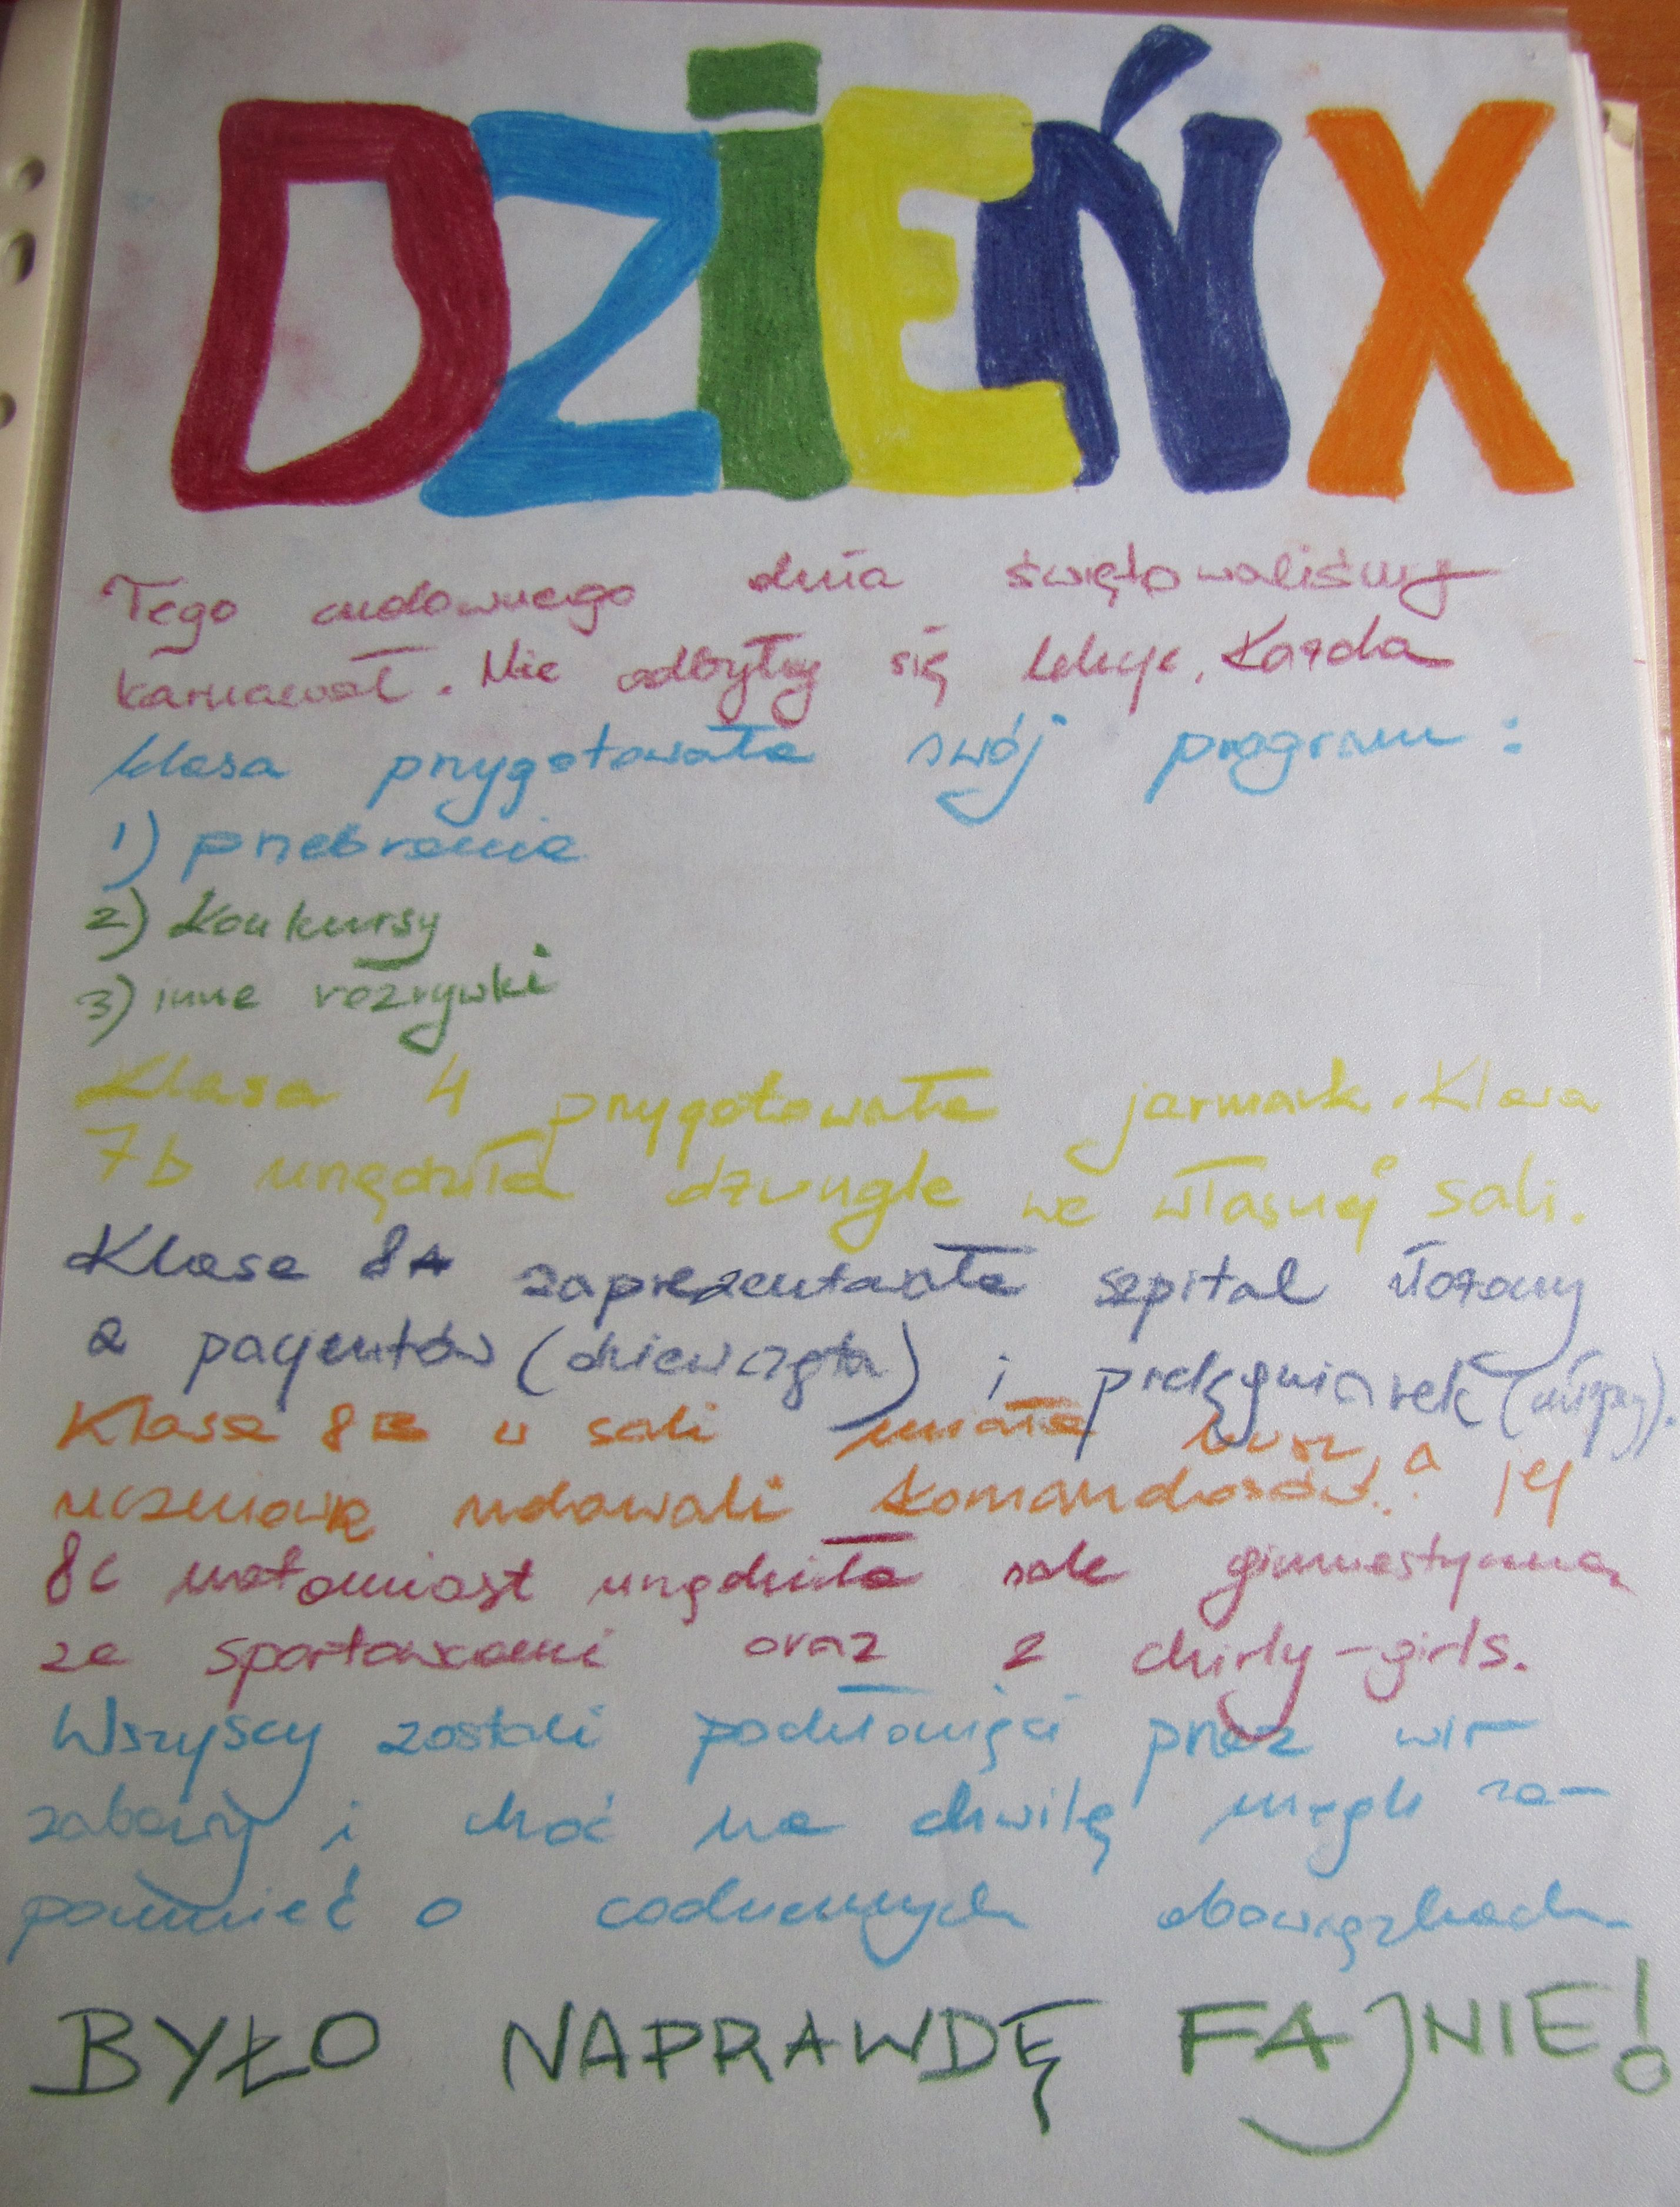 DZiEŃ X
Tego cudownego dnia świętowaliśmy
karnawał. Nie odbyły się lekcje. Każda
klasa przygotowała swój program:
1) przebrania
2) Konkursy
3) inne rozrywki
Klasa 4 przygotowała jarmark. Klasa
7b urządziła dżungle we własnej sali.
Klasa 8A zaprezentowała szpital złożony
z pacjentów (dziewczęta) i pielęgniarek (chłopcy).
Klasa 8B w sali miała busz, a jej
uczniowie udawali komandosów.
8c natomiast urządziła sale gimnastyczną
ze sportowcami oraz z chirly-girls.
Wszyscy zostali pochłonięci przez wir
zabawy i choć na chwilę mogli za-
pomnieć o codziennych obowiązkach
BYŁO NAPRAWDĘ FAJNIE!